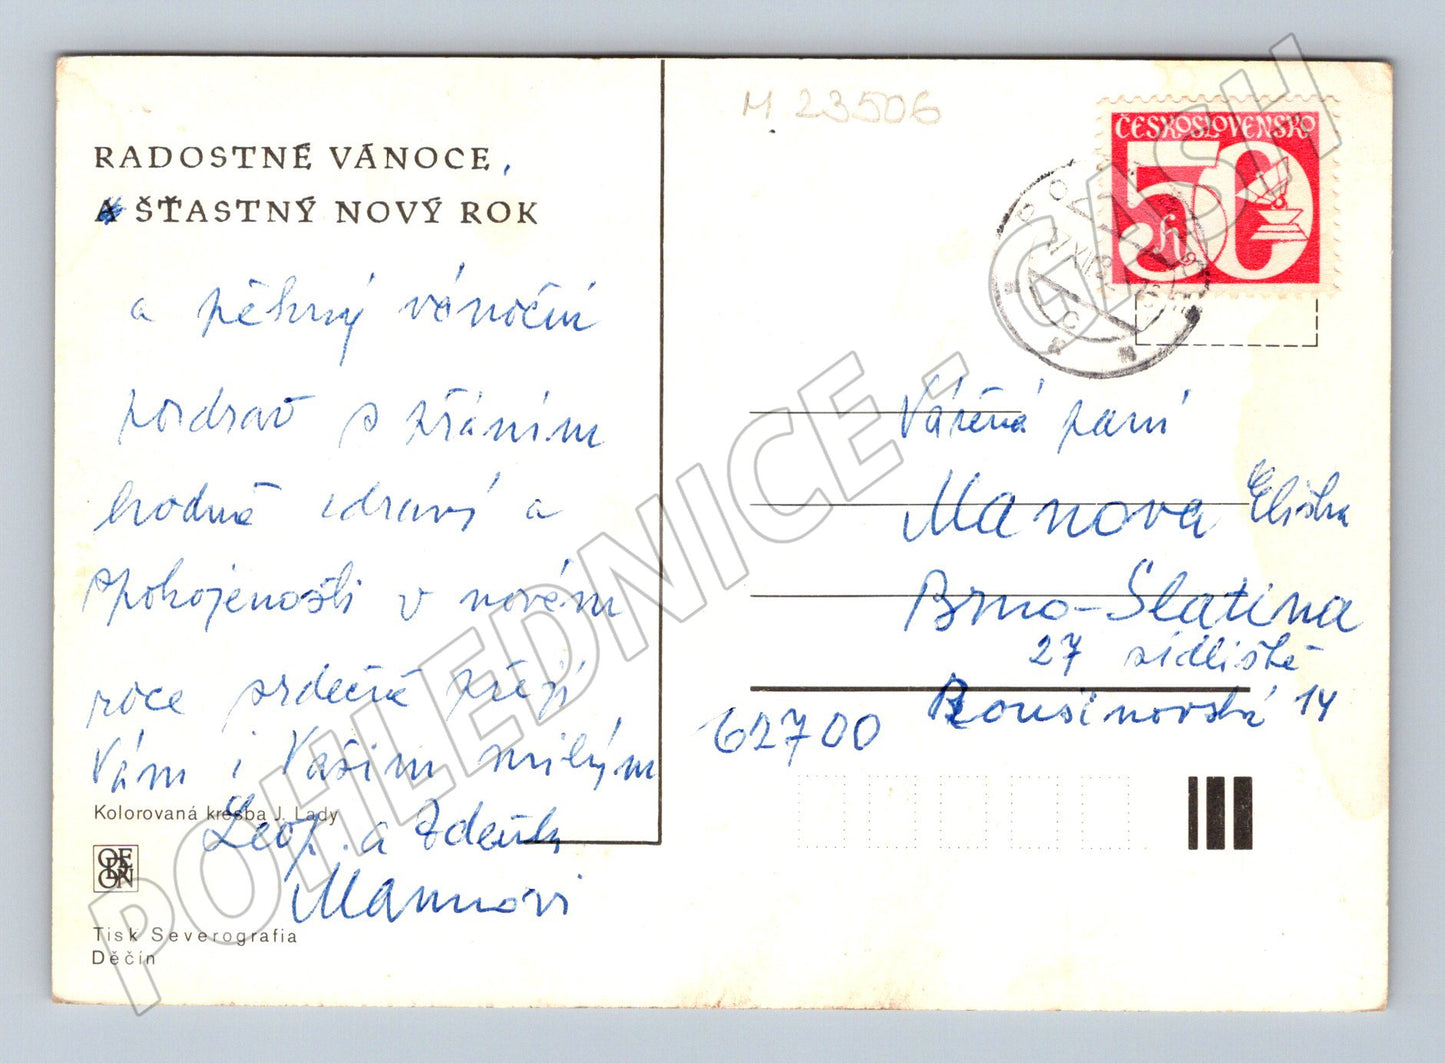 RADOSTNÉ VÁNOCE,
A ŠŤASTNÝ NOVÝ ROK
a pěkný vánoční
pozdrav s přáním
hodně zdraví a
spokojenosti v novém
roce srdečně přejí
Vám i Vašim milým
Leop. a Zdeňk
Mannovi
Kolorovaná kresba J. Lady
ODEON
Tisk Severografia
Děčín
M 23506
ČESKOSLOVENSKO
50 h
Vážená paní
Manova Eliška
Brno-Slatina
27 sídliště
Rousínovská 14
62700
POHLEDNICE - GASH